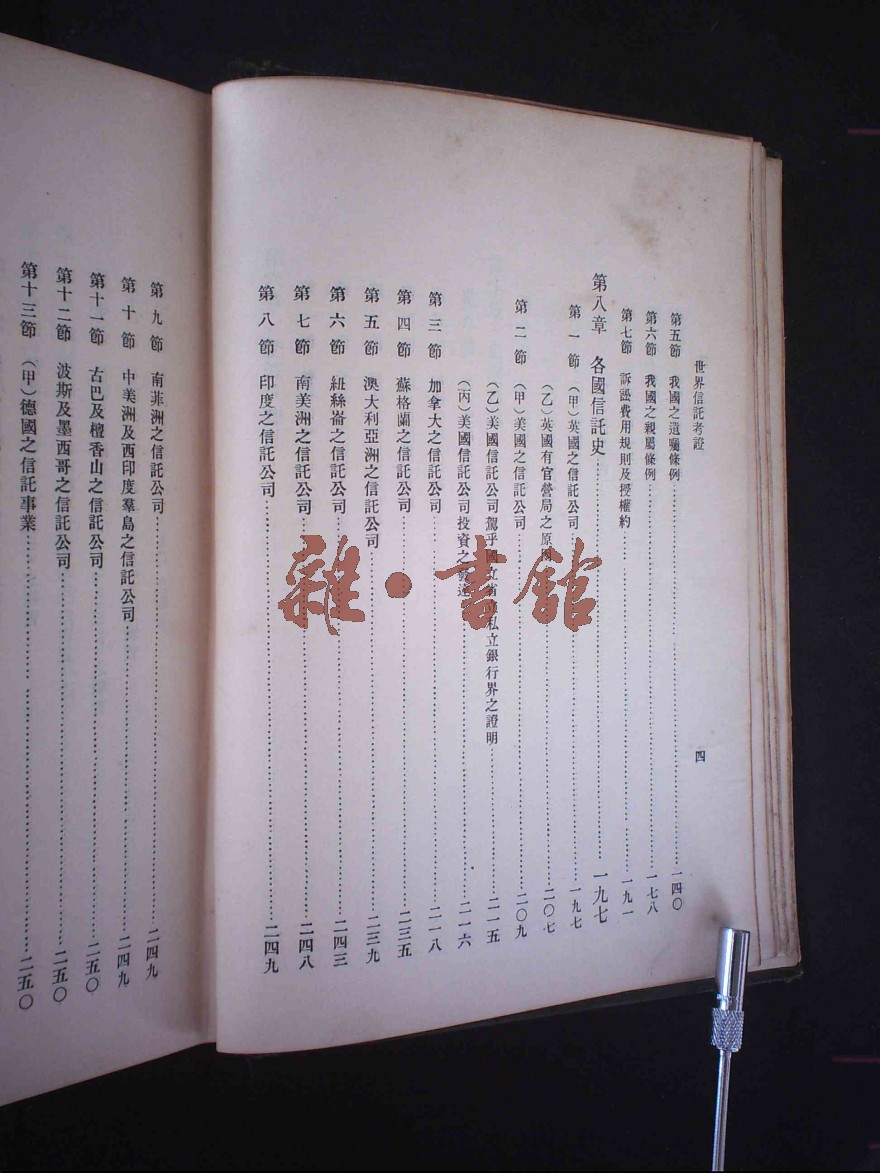 世界信託考證
四
第五節 我國之遺囑條例……一四〇
第六節 我國之親屬條例……一七八
第七節 訴訟費用規則及授權約……一九一
第八章 各國信託史……一九七
第一節 (甲)英國之信託公司……一九七
(乙)英國有官營局之原因……二〇七
第二節 (甲)美國之信託公司……二〇九
(乙)美國信託公司駕乎國立省立私立銀行界之證明……二一五
(丙)美國信託公司投資之……二一六
第三節 加拿大之信託公司……二一八
第四節 蘇格蘭之信託公司……二三五
第五節 澳大利亞洲之信託公司……二三九
第六節 紐絲崙之信託公司……二四三
第七節 南美洲之信託公司……二四八
第八節 印度之信託公司……二四九
第九節 南菲洲之信託公司……二四九
第十節 中美洲及西印度羣島之信託公司……二四九
第十一節 古巴及檀香山之信託公司……二五〇
第十二節 波斯及墨西哥之信託公司……二五〇
第十三節 (甲)德國之信託事業……二五〇
雜·書館